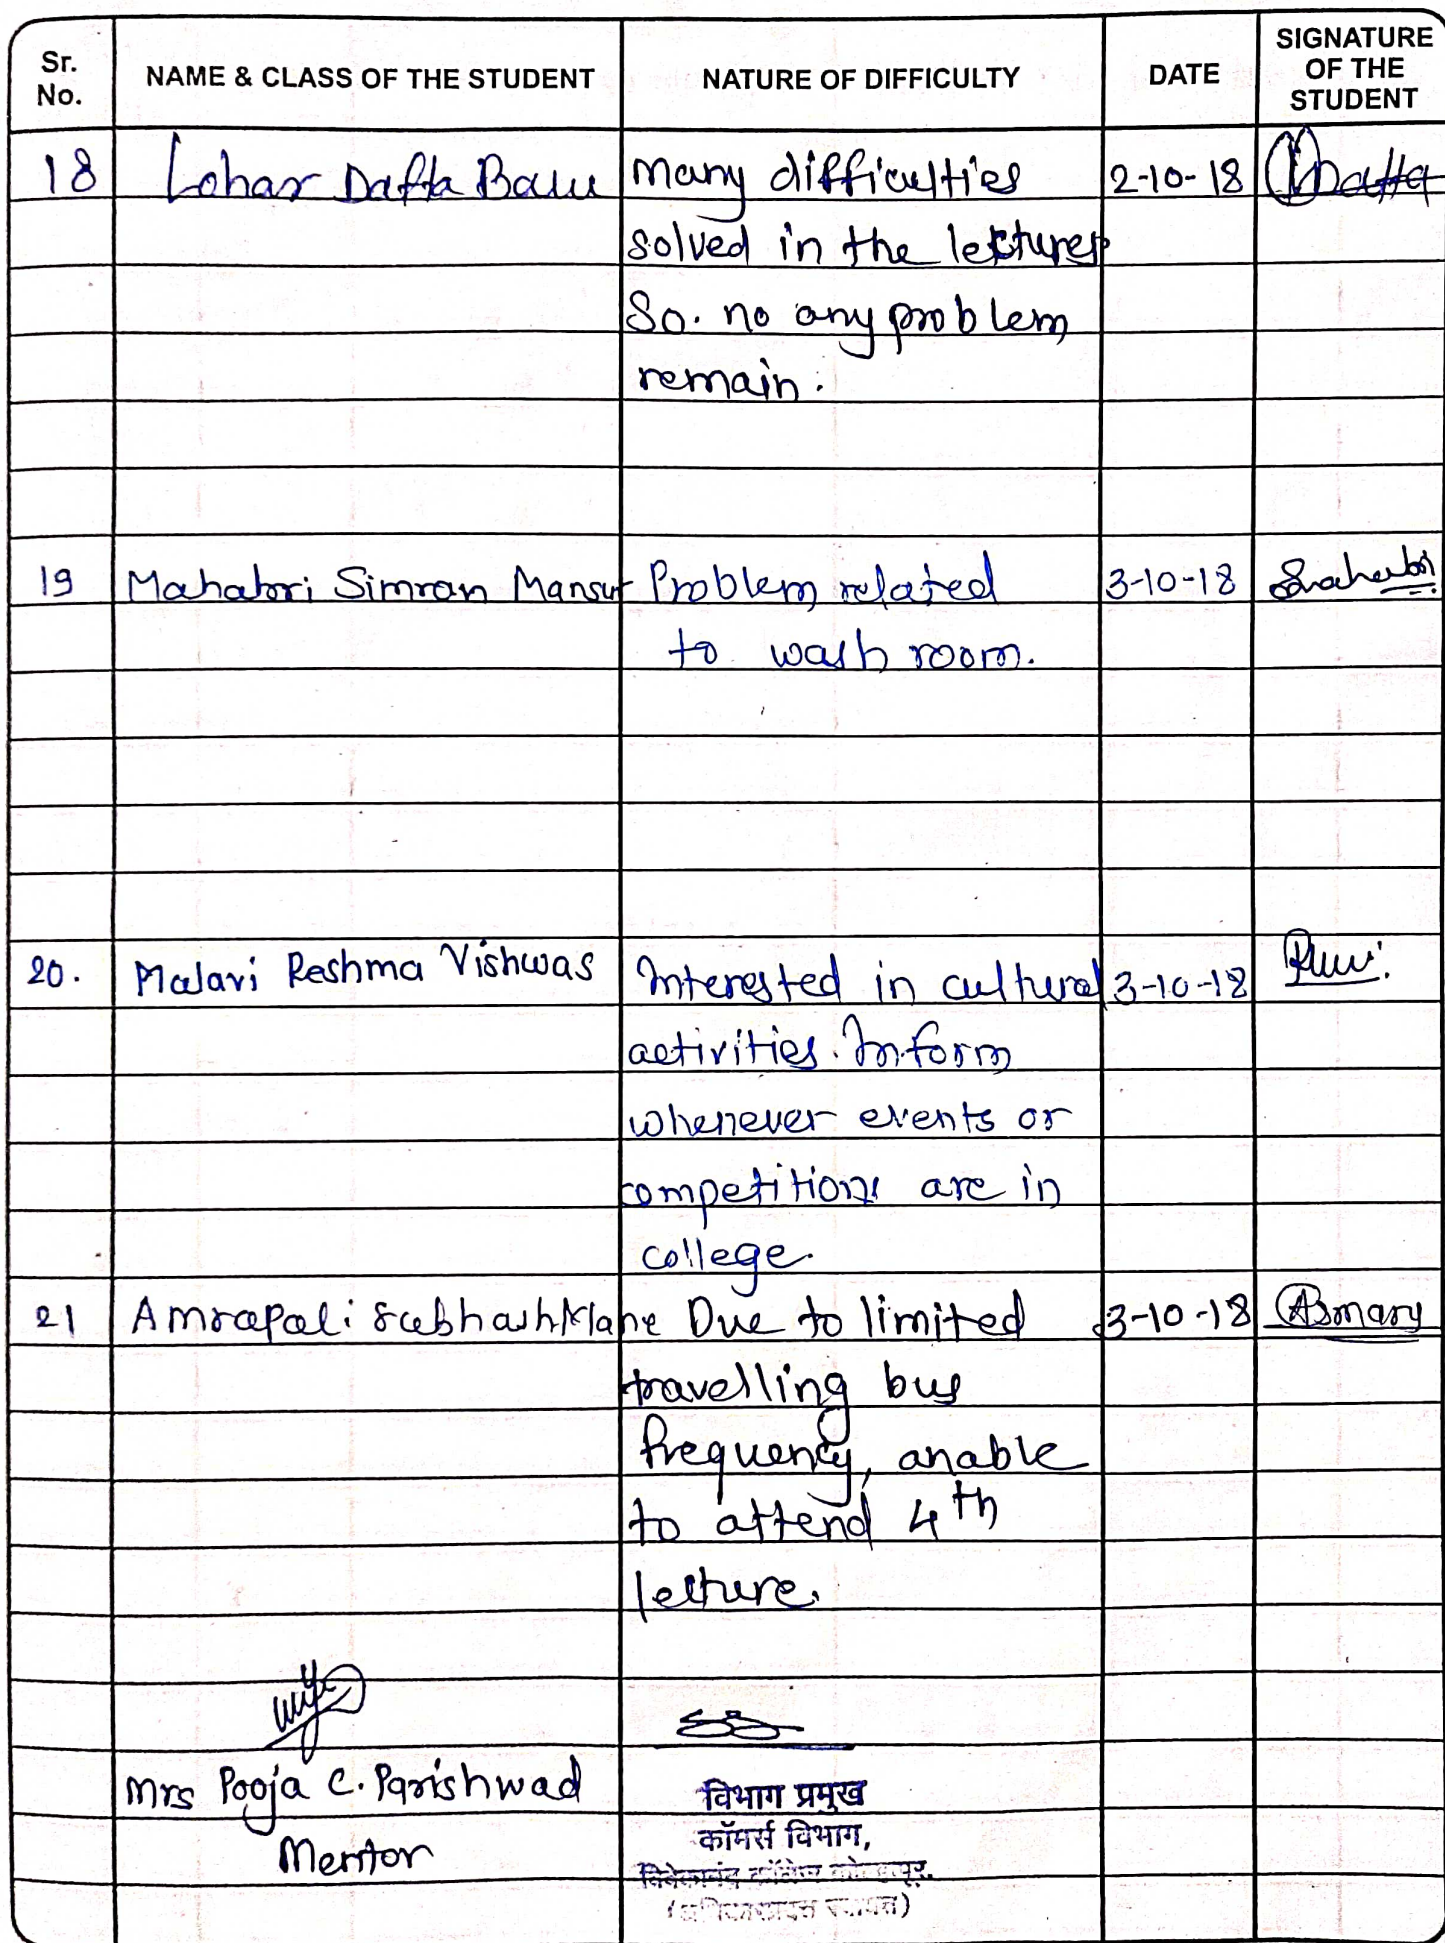 Sr. No. NAME & CLASS OF THE STUDENT NATURE OF DIFFICULTY DATE SIGNATURE OF THE STUDENT
18 Lohar Datta Balu many difficulties 2-10-18 Datta
solved in the lectures
So. no any problem
remain.
19 Mahabri Simran Mansur Problem related 3-10-18
to wash room.
20. Malavi Reshma Vishwas Interested in cultural 3-10-18
activities. Inform
whenever events or
competitions are in
college.
21 Amrapali Subhash Mane Due to limited 3-10-18 Asmany
travelling bus
frequency, anable
to attend 4th
lecture.
Mrs Pooja C. Parishwad
Mentor
विभाग प्रमुख
कॉमर्स विभाग,
विवेकानंद कॉलेज कोल्हापूर.